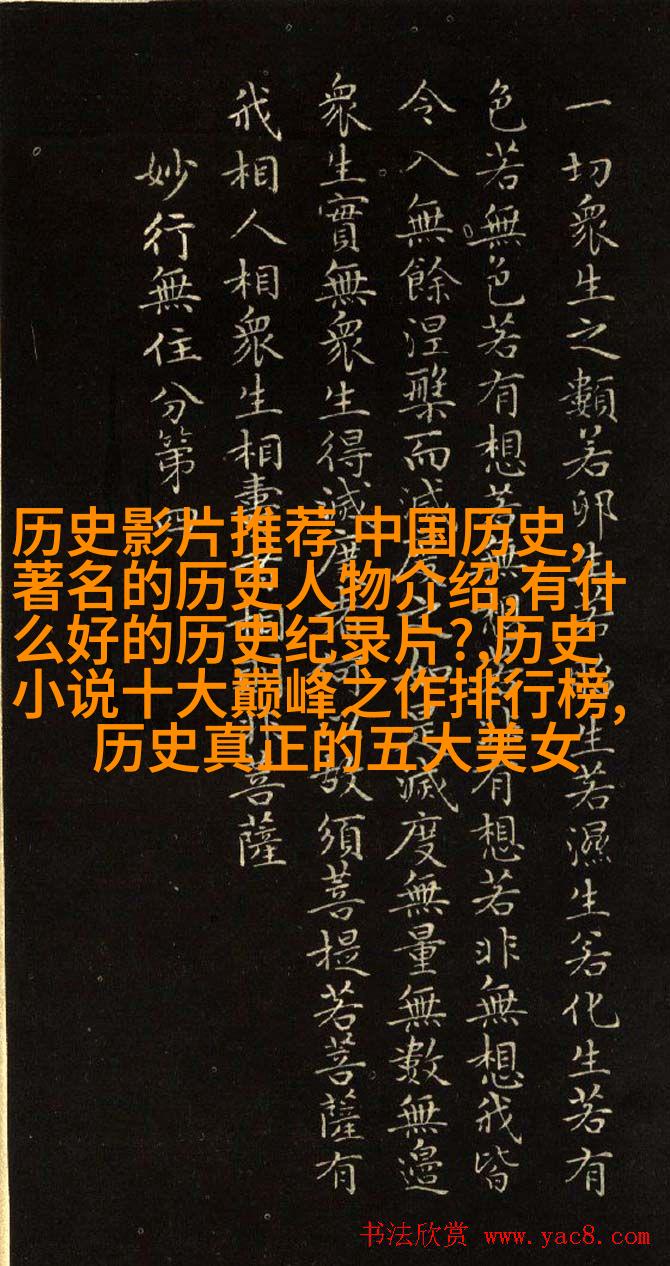 一切衆生之類若卵生若胎生若濕生若化生若有
色若無色若有想若無想若非有想若非無想我皆
令入無餘涅槃而滅度之如是滅度無量無數無邊
衆生實無衆生得滅度者何以故須菩提若菩薩有
我相人相衆生相壽者相即非菩薩
妙行無住分第四
历史影片推荐 中国历史,
著名的历史人物介绍,有什
么好的历史纪录片?,历史
小说十大巅峰之作排行榜,
历史真正的五大美女
书法欣赏 www.yac8.com